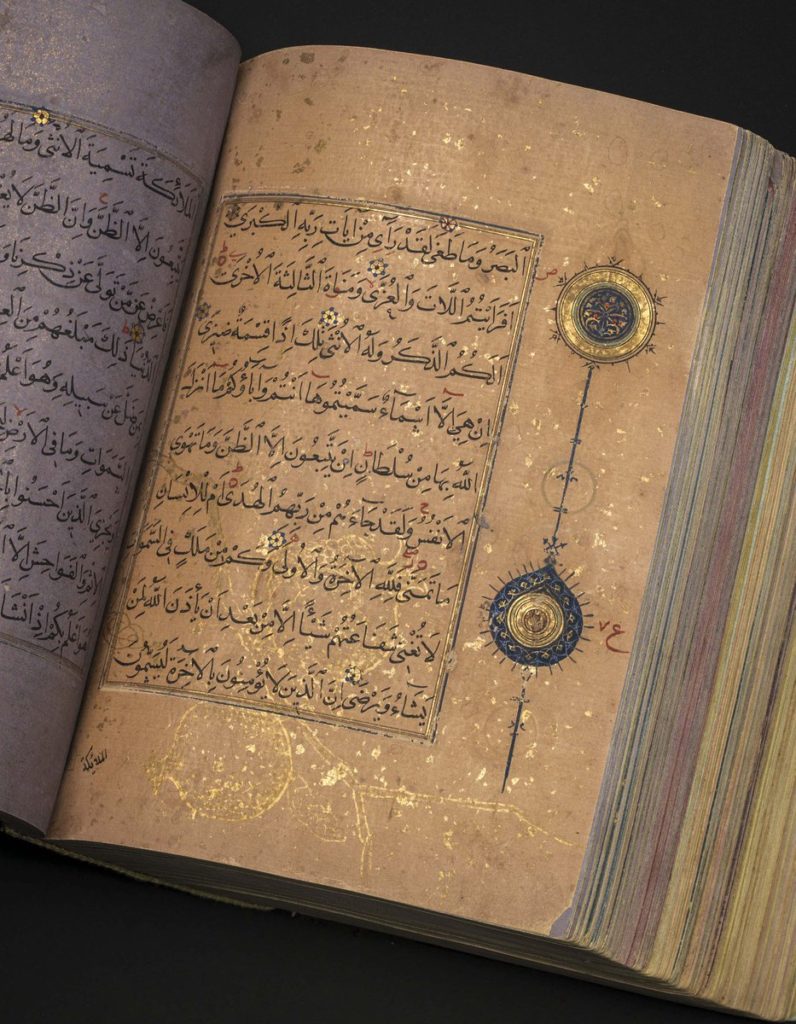 البَصَرُ وَمَا طَغَى لَقَدْ رَأَى مِنْ آيَاتِ رَبِّهِ الْكُبْرَى
اَفَرَاَيْتُمُ اللَّاتَ وَالْعُزَّى وَمَنَاةَ الثَّالِثَةَ الْاُخْرَى
اَلَكُمُ الذَّكَرُ وَلَهُ الْاُنْثَى تِلْكَ اِذًا قِسْمَةٌ ضِيزَى
اِنْ هِيَ اِلَّا اَسْمَاءٌ سَمَّيْتُمُوهَا اَنْتُمْ وَآبَاؤُكُمْ مَا اَنْزَلَ
اللَّهُ بِهَا مِنْ سُلْطَانٍ اِنْ يَتَّبِعُونَ اِلَّا الظَّنَّ وَمَا تَهْوَى
الْاَنْفُسُ وَلَقَدْ جَاءَهُمْ مِنْ رَبِّهِمُ الْهُدَى اَمْ لِلْاِنْسَانِ
مَا تَمَنَّى فَلِلَّهِ الْآخِرَةُ وَالْاُولَى وَكَمْ مِنْ مَلَكٍ فِي السَّمَوَاتِ
لَا تُغْنِي شَفَاعَتُهُمْ شَيْئًا اِلَّا مِنْ بَعْدِ اَنْ يَأْذَنَ اللَّهُ لِمَنْ
يَشَاءُ وَيَرْضَى اِنَّ الَّذِينَ لَا يُؤْمِنُونَ بِالْآخِرَةِ لَيُسَمُّونَ
ع ٧
الملائكة
الْمَلَائِكَةَ تَسْمِيَةَ الْاُنْثَى وَمَا لَهُ
يَتَّبِعُونَ اِلَّا الظَّنَّ وَاِنَّ الظَّنَّ لَا يُغْ
فَاَعْرِضْ عَنْ مَنْ تَوَلَّى عَنْ ذِكْرِنَا وَ
الدُّنْيَا ذَلِكَ مَبْلَغُهُمْ مِنَ الْعِ
بِمَنْ ضَلَّ عَنْ سَبِيلِهِ وَهُوَ اَعْلَمُ
السَّمَوَاتِ وَمَا فِي الْاَرْضِ لِيَ
وَيَجْزِيَ الَّذِينَ اَحْسَنُوا بِا
الْاِثْمِ وَالْفَوَاحِشَ اِلَّا ا
هُوَ اَعْلَمُ بِكُمْ اِذْ اَنْشَاَ